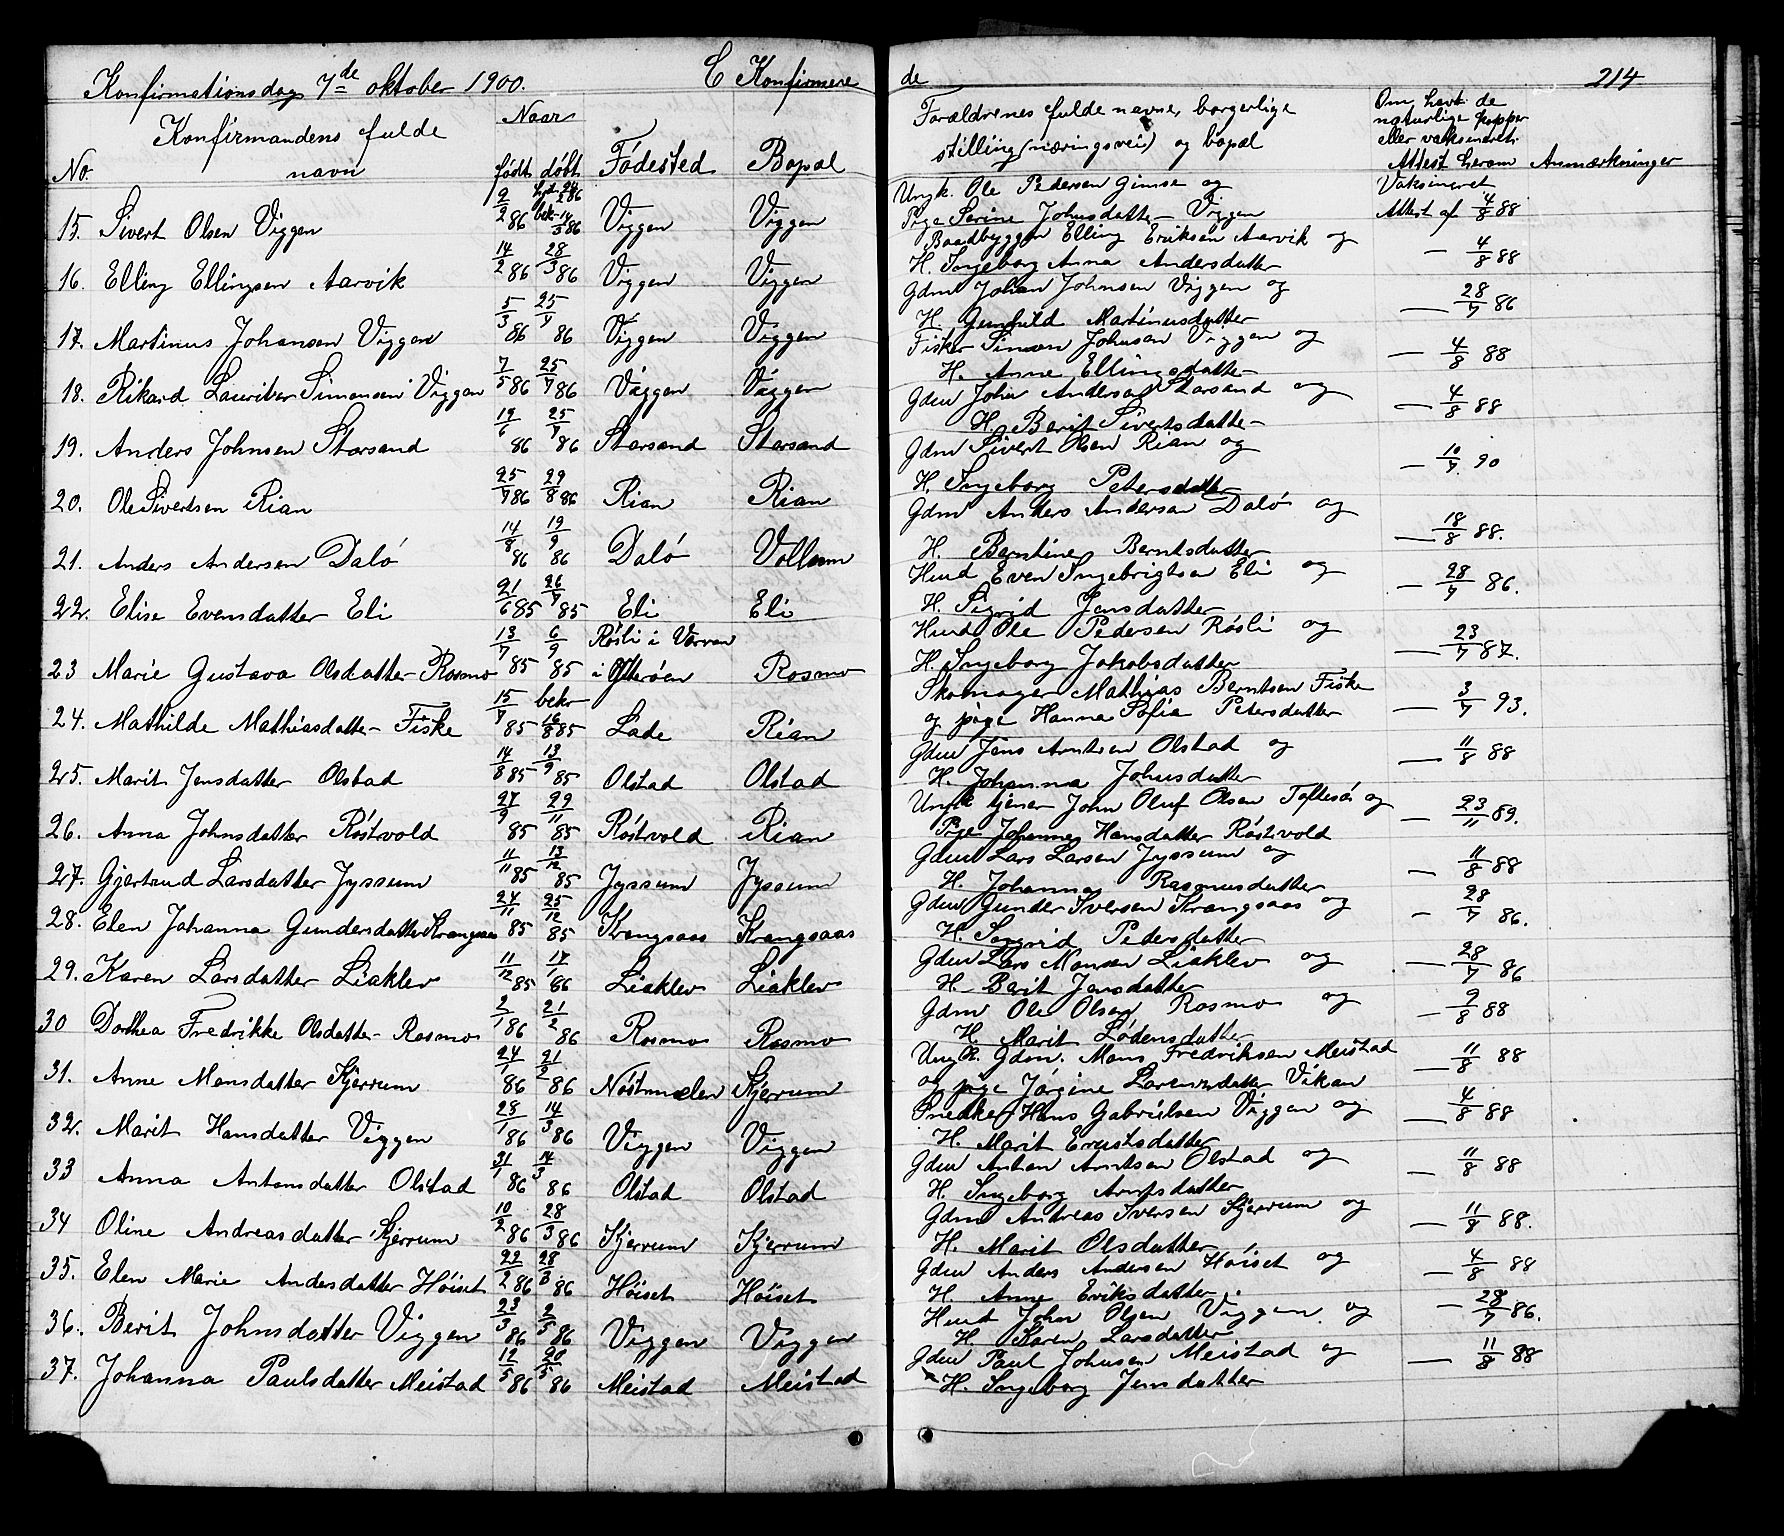 Konfirmationsdag 7de oktober 1900. C Konfirmere de 214
No Konfirmandens fulde navn Naar født døbt Fødested Bopæl Forældrenes fulde navne, borgerlige stilling (næringsvei) og bopæl Om havt de naturlige kopper eller vaksineret. Attest herom Anmærkninger
15. Sivert Olsen Viggen 9/2 86 hjd. 24/2 86 bek. 14/3 86 Viggen Viggen Ungk. Ole Pedersen Gimse og
Pige Serine Johnsdatter Viggen Vaksineret Attest af 4/8 88
16. Elling Ellingsen Aarvik 14/2 86 28/3 86 Viggen Viggen Baadbygger Elling Eriksen Aarvik og
H. Ingeborg Anna Andersdatter — 4/8 88
17. Martinus Johansen Viggen 5/3 86 25/7 86 Viggen Viggen Gdm Johan Johnsen Viggen og
H. Gunhild Martinusdatter — 28/7 86
18. Rikard Lauritz Simonsen Viggen 7/5 86 25/7 86 Viggen Viggen Fisker Simon Johnsen Viggen og
H. Anne Ellingsdatter — 4/8 88
19. Anders Johnsen Storsand 19/6 86 25/7 86 Storsand Storsand Gdm John Andersen Storsand og
H. Berit Sivertsdatter — 4/8 88
20. Ole Sivertsen Rian 25/7 86 29/8 86 Rian Rian Gdm Sivert Olsen Rian og
H. Ingeborg Petersdatter — 10/7 90
21. Anders Andersen Dalø 14/8 86 19/9 86 Dalø Vollum Gdm Anders Andersen Dalø og
H. Berntine Berntsdatter — 18/8 88.
22. Elise Evensdatter Eli 21/6 85 26/7 85 Eli Eli Husd Even Ingebrigtsen Eli og
H. Sigrid Jensdatter — 28/7 86.
23 Marie Gustava Olsdatter Rosmo 13/7 85 6/9 85 Røsli i Værran i Ytterøen Rosmo Husd Ole Pedersen Røsli og
H. Ingeborg Jakobsdatter — 23/7 87.
24. Mathilde Mathiasdatter Fiske 15/7 85 bekr 16/8 85 Lade Rian Skomager Mathias Berntsen Fiske
og pige Hanna Sofia Petersdatter — 3/7 93.
25. Marit Jensdatter Olstad 14/8 85 13/9 85 Olstad Olstad Gdm Jens Arntsen Olstad og
H. Johanna Johnsdatter — 11/8 88
26. Anna Johnsdatter Røstvold 27/9 85 29/11 85 Røstvold Rian Ungk tjener John Oluf Olsen Toftesø og
Pige Johanna Hansdatter Røstvold — 23/11 89.
27. Gjertrud Larsdatter Jyssum 11/11 85 13/12 85 Jyssum Jyssum Gdm Lars Larsen Jyssum og
H. Johanna Rasmusdatter — 11/8 88
28. Elen Johanna Gundersdatter Krangsaas 24/11 85 25/12 85 Krangsaas Krangsaas Gdm Gunder Iversen Krangsaas og
H. Ingrid Pedersdatter — 28/7 86.
29. Karen Larsdatter Liaklev 11/12 85 17/1 86 Liaklev Liaklev Gdm Lars Monsen Liaklev og
H. Berit Jensdatter — 28/7 86
30 Dorthea Fredrikke Olsdatter Rosmo 2/1 86 21/2 86 Rosmo Rosmo Gdm Ole Olsen Rosmo og
H. Marit Lødensdatter — 9/8 88
31. Anne Monsdatter Skjerrum 24/1 86 21/2 86 Nøstmælen Skjerrum Ungk. Gdm. Mons Fredriksen Meistad
og pige Jørgine Lorentsdatter Vikan — 11/8 88
32. Marit Hansdatter Viggen 28/1 86 14/3 86 Viggen Viggen Snedker Hans Gabrielsen Viggen og
H. Marit Ernstsdatter — 4/8 88
33 Anna Antonsdatter Olstad 31/1 86 14/3 86 Olstad Olstad Gdm Anton Arntsen Olstad og
H. Ingeborg Arntsdatter — 11/8 88
34 Oline Andreasdatter Skjerrum 10/2 86 28/3 86 Skjerrum Skjerrum Gdm Andreas Iversen Skjerrum og
H. Marit Olsdatter — 11/8 88.
35. Elen Marie Andersdatter Høiset 22/2 86 28/3 86 Høiset Høiset Gdm Anders Andersen Høiset og
H. Anne Eriksdatter. — 4/8 88
36. Berit Johnsdatter Viggen 23/3 86 2/5 86 Viggen Viggen Husd John Olsen Viggen og
H. Karen Larsdatter — 28/7 86.
37. Johanna Paulsdatter Meistad 12/5 86 20/5 86 Meistad Meistad Gdm Paul Johnsen Meistad og
H. Ingeborg Jensdatter — 11/8 88